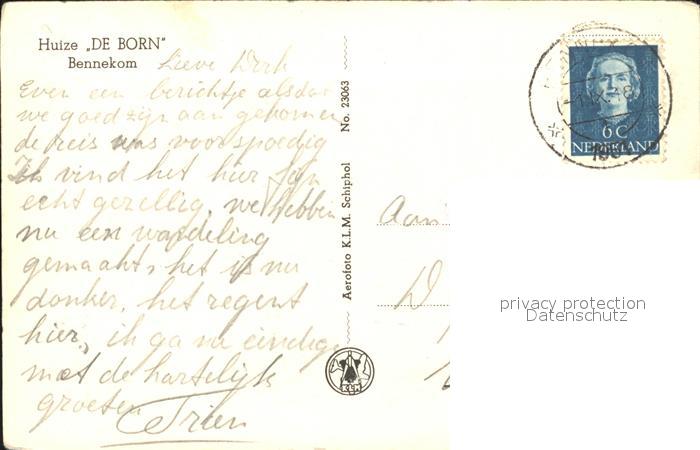 Huize „DE BORN”
Bennekom
Lieve Dirk
Even een berichtje alsdat
we goed zijn aan gekomen
de reis was voorspoedig
Ik vind het hier fijn
echt gezellig, we hebben
nu een wandeling
gemaakt, het is nu
donker, het regent
hier, ik ga nu eindige
met de hartelijk
groeten
Trien
Aerofoto K.L.M. Schiphol No. 23063
6 C
NEDERLAND
Aan
D
privacy protection
Datenschutz